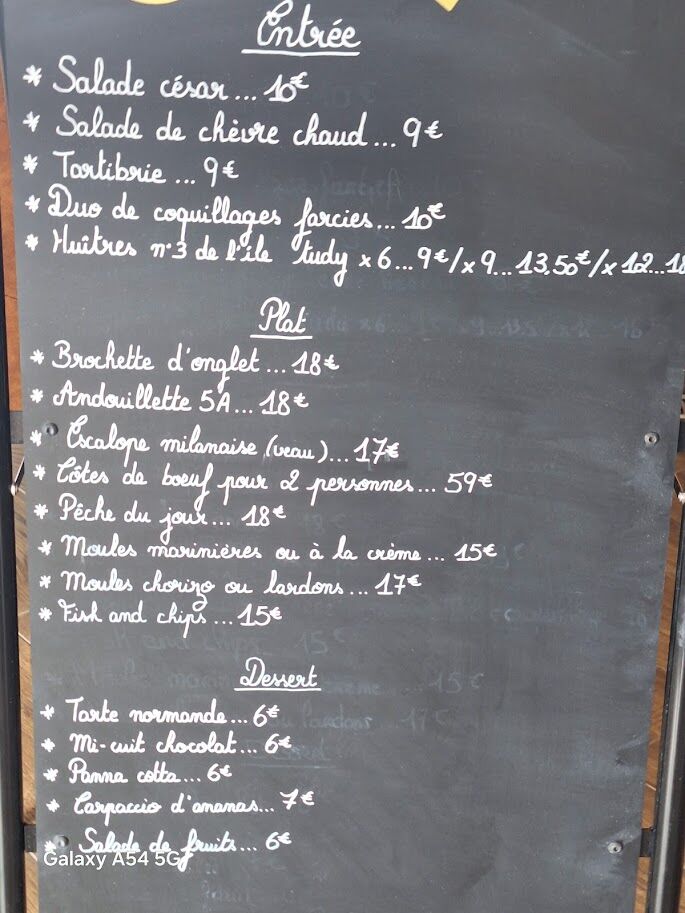 Entrée
* Salade césar... 10€
* Salade de chèvre chaud... 9€
* Tartibrie ... 9€
* Duo de coquillages farcies... 10€
* Huîtres n°3 de l'île tudy x 6... 9€/x 9... 13,50€/x 12...18
Plat
* Brochette d'onglet... 18€
* Andouillette 5A... 18€
* Escalope milanaise (veau)... 17€
* Côtes de boeuf pour 2 personnes... 59€
* Pêche du jour... 18€
* Moules marinières ou à la crème... 15€
* Moules chorizo ou lardons... 17€
* Fish and chips... 15€
Dessert
* Tarte normande... 6€
* Mi-cuit chocolat... 6€
* Panna cotta... 6€
* Carpaccio d'ananas... 7€
* Salade de fruits... 6€
Galaxy A54 5G